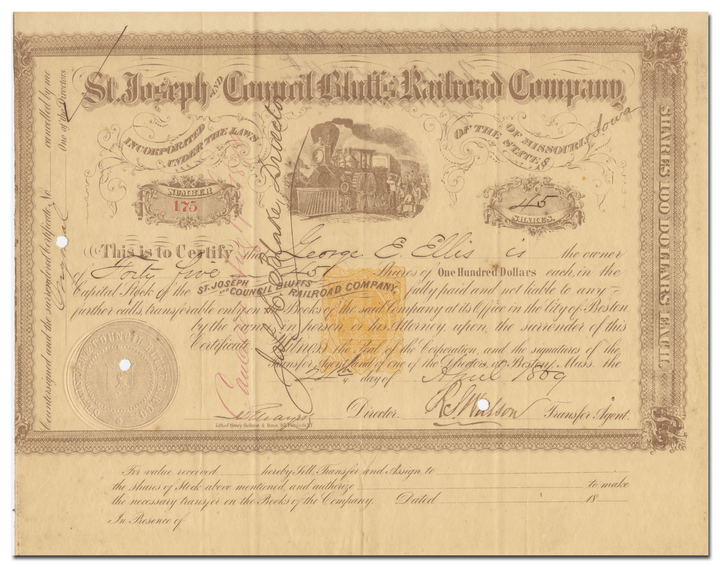 St. Joseph AND Council Bluffs Railroad Company
INCORPORATED UNDER THE LAWS
OF THE STATES OF MISSOURI & Iowa
NUMBER
175
45
SHARES.
This is to Certify that George E Ellis is the owner
of Forty five 45 Shares of One Hundred Dollars each, in the
Capital Stock of the ST. JOSEPH AND COUNCIL BLUFFS RAILROAD COMPANY, fully paid and not liable to any
further calls transferable only on the Books of the said Company at its Office in the City of Boston
by the owner in person, or his Attorney, upon the surrender of this
Certificate. Witness the Seal of the Corporation, and the signatures of the
Transfer Agent and of one of the Directors, at Boston, Mass. the
24th day of April 1869
Director.
Transfer Agent.
For value received hereby Sell, Transfer and Assign to
the shares of Stock above mentioned, and authorize to make
the necessary transfer on the Books of the Company. Dated 18
In Presence of
SHARES 100 DOLLARS EACH.
Countersigned and the surrendered Certificate No cancelled by me
One of the Directors.
Director